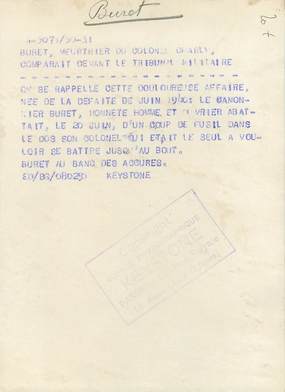 Buret
BURET, MEURTRIER DU COLONEL CHARLY,
COMPARAIT DEVANT LE TRIBUNAL MILITAIRE
ON SE RAPPELLE CETTE DOULOUREUSE AFFAIRE,
NEE DE LA DEFAITE DE JUIN 1940: LE CANON-
NIER BURET, HONNETE HOMME ET OUVRIER ABAT-
TAIT, LE 20 JUIN, D'UN COUP DE FUSIL DANS
LE DOS SON COLONEL QUI ETAIT LE SEUL A VOU-
LOIR SE BATTRE JUSQU'AU BOUT.
BURET AU BANC DES ACCUSES.
KEYSTONE
KEYSTONE